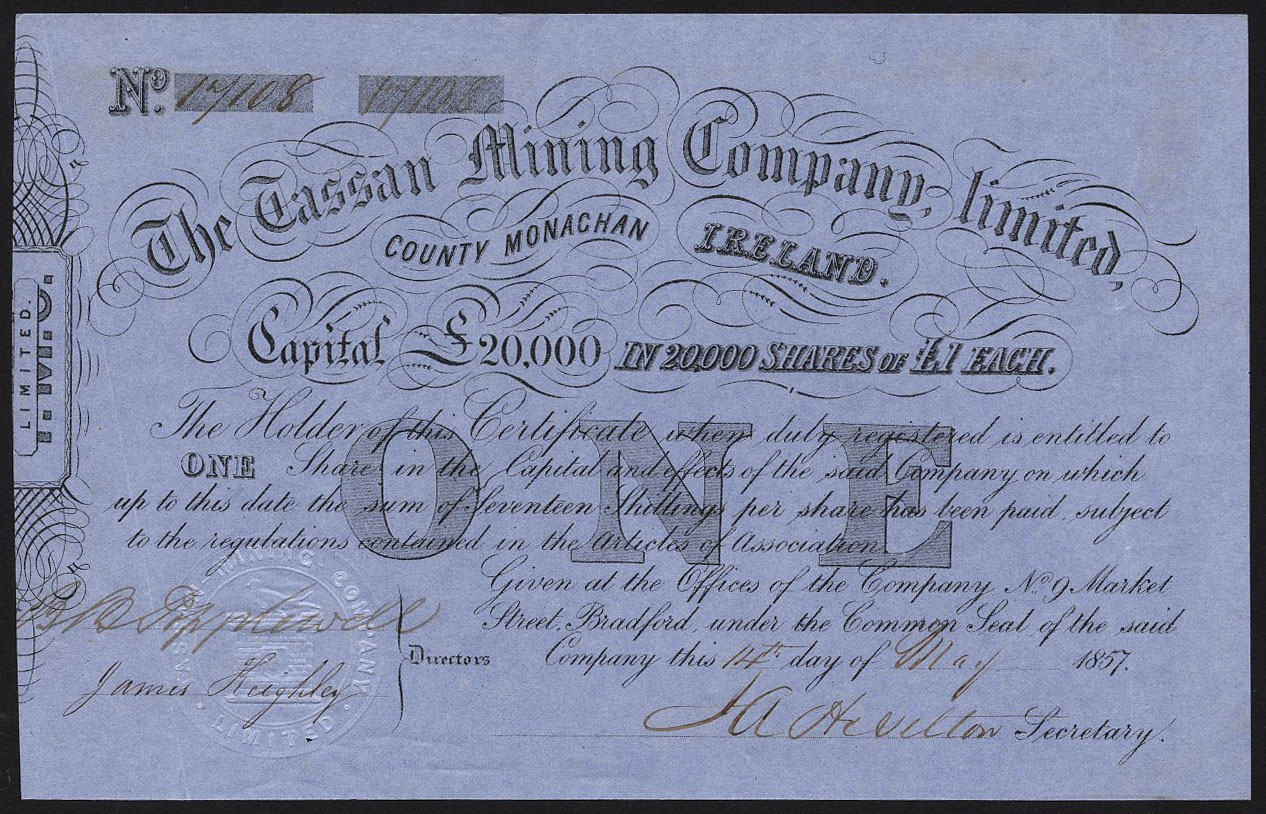 No. 17108 17108
The Tassan Mining Company, limited,
COUNTY MONACHAN IRELAND.
Capital £20,000 IN 20,000 SHARES OF £1 EACH.
LIMITED.
T.M.C.
ONE
The Holder of this Certificate when duly registered is entitled to
ONE Share in the Capital and effects of the said Company on which
up to this date the sum of Seventeen Shillings per share has been paid, subject
to the regulations contained in the Articles of Association.
Given at the Offices of the Company No. 9 Market
Street, Bradford, under the Common Seal of the said
Company this 14th day of May 1857.
B B Popplewell
James Keighley
Directors
MINING COMPANY
LIMITED
Secretary.